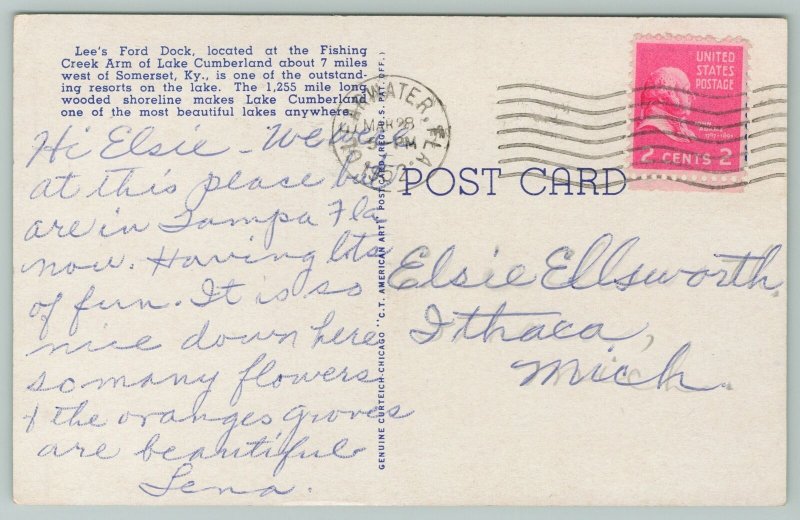 Lee's Ford Dock, located at the Fishing
Creek Arm of Lake Cumberland about 7 miles
west of Somerset, Ky., is one of the outstand-
ing resorts on the lake. The 1,255 mile long
wooded shoreline makes Lake Cumberland
one of the most beautiful lakes anywhere.
Hi Elsie - We
at this place but
are in Tampa Fla
now. Having lots
of fun. It is so
nice down here
so many flowers
& the oranges groves
are beautiful
Lena.
GENUINE CURTEICH-CHICAGO "C.T. AMERICAN ART" POST CARD (REG. U.S. PAT. OFF.)
CLEARWATER, FLA.
MAR 28
PM
1952
UNITED
STATES
POSTAGE
JOHN
ADAMS
1797-1801
2 CENTS 2
POST CARD
Elsie Ellsworth
Ithaca,
Mich.